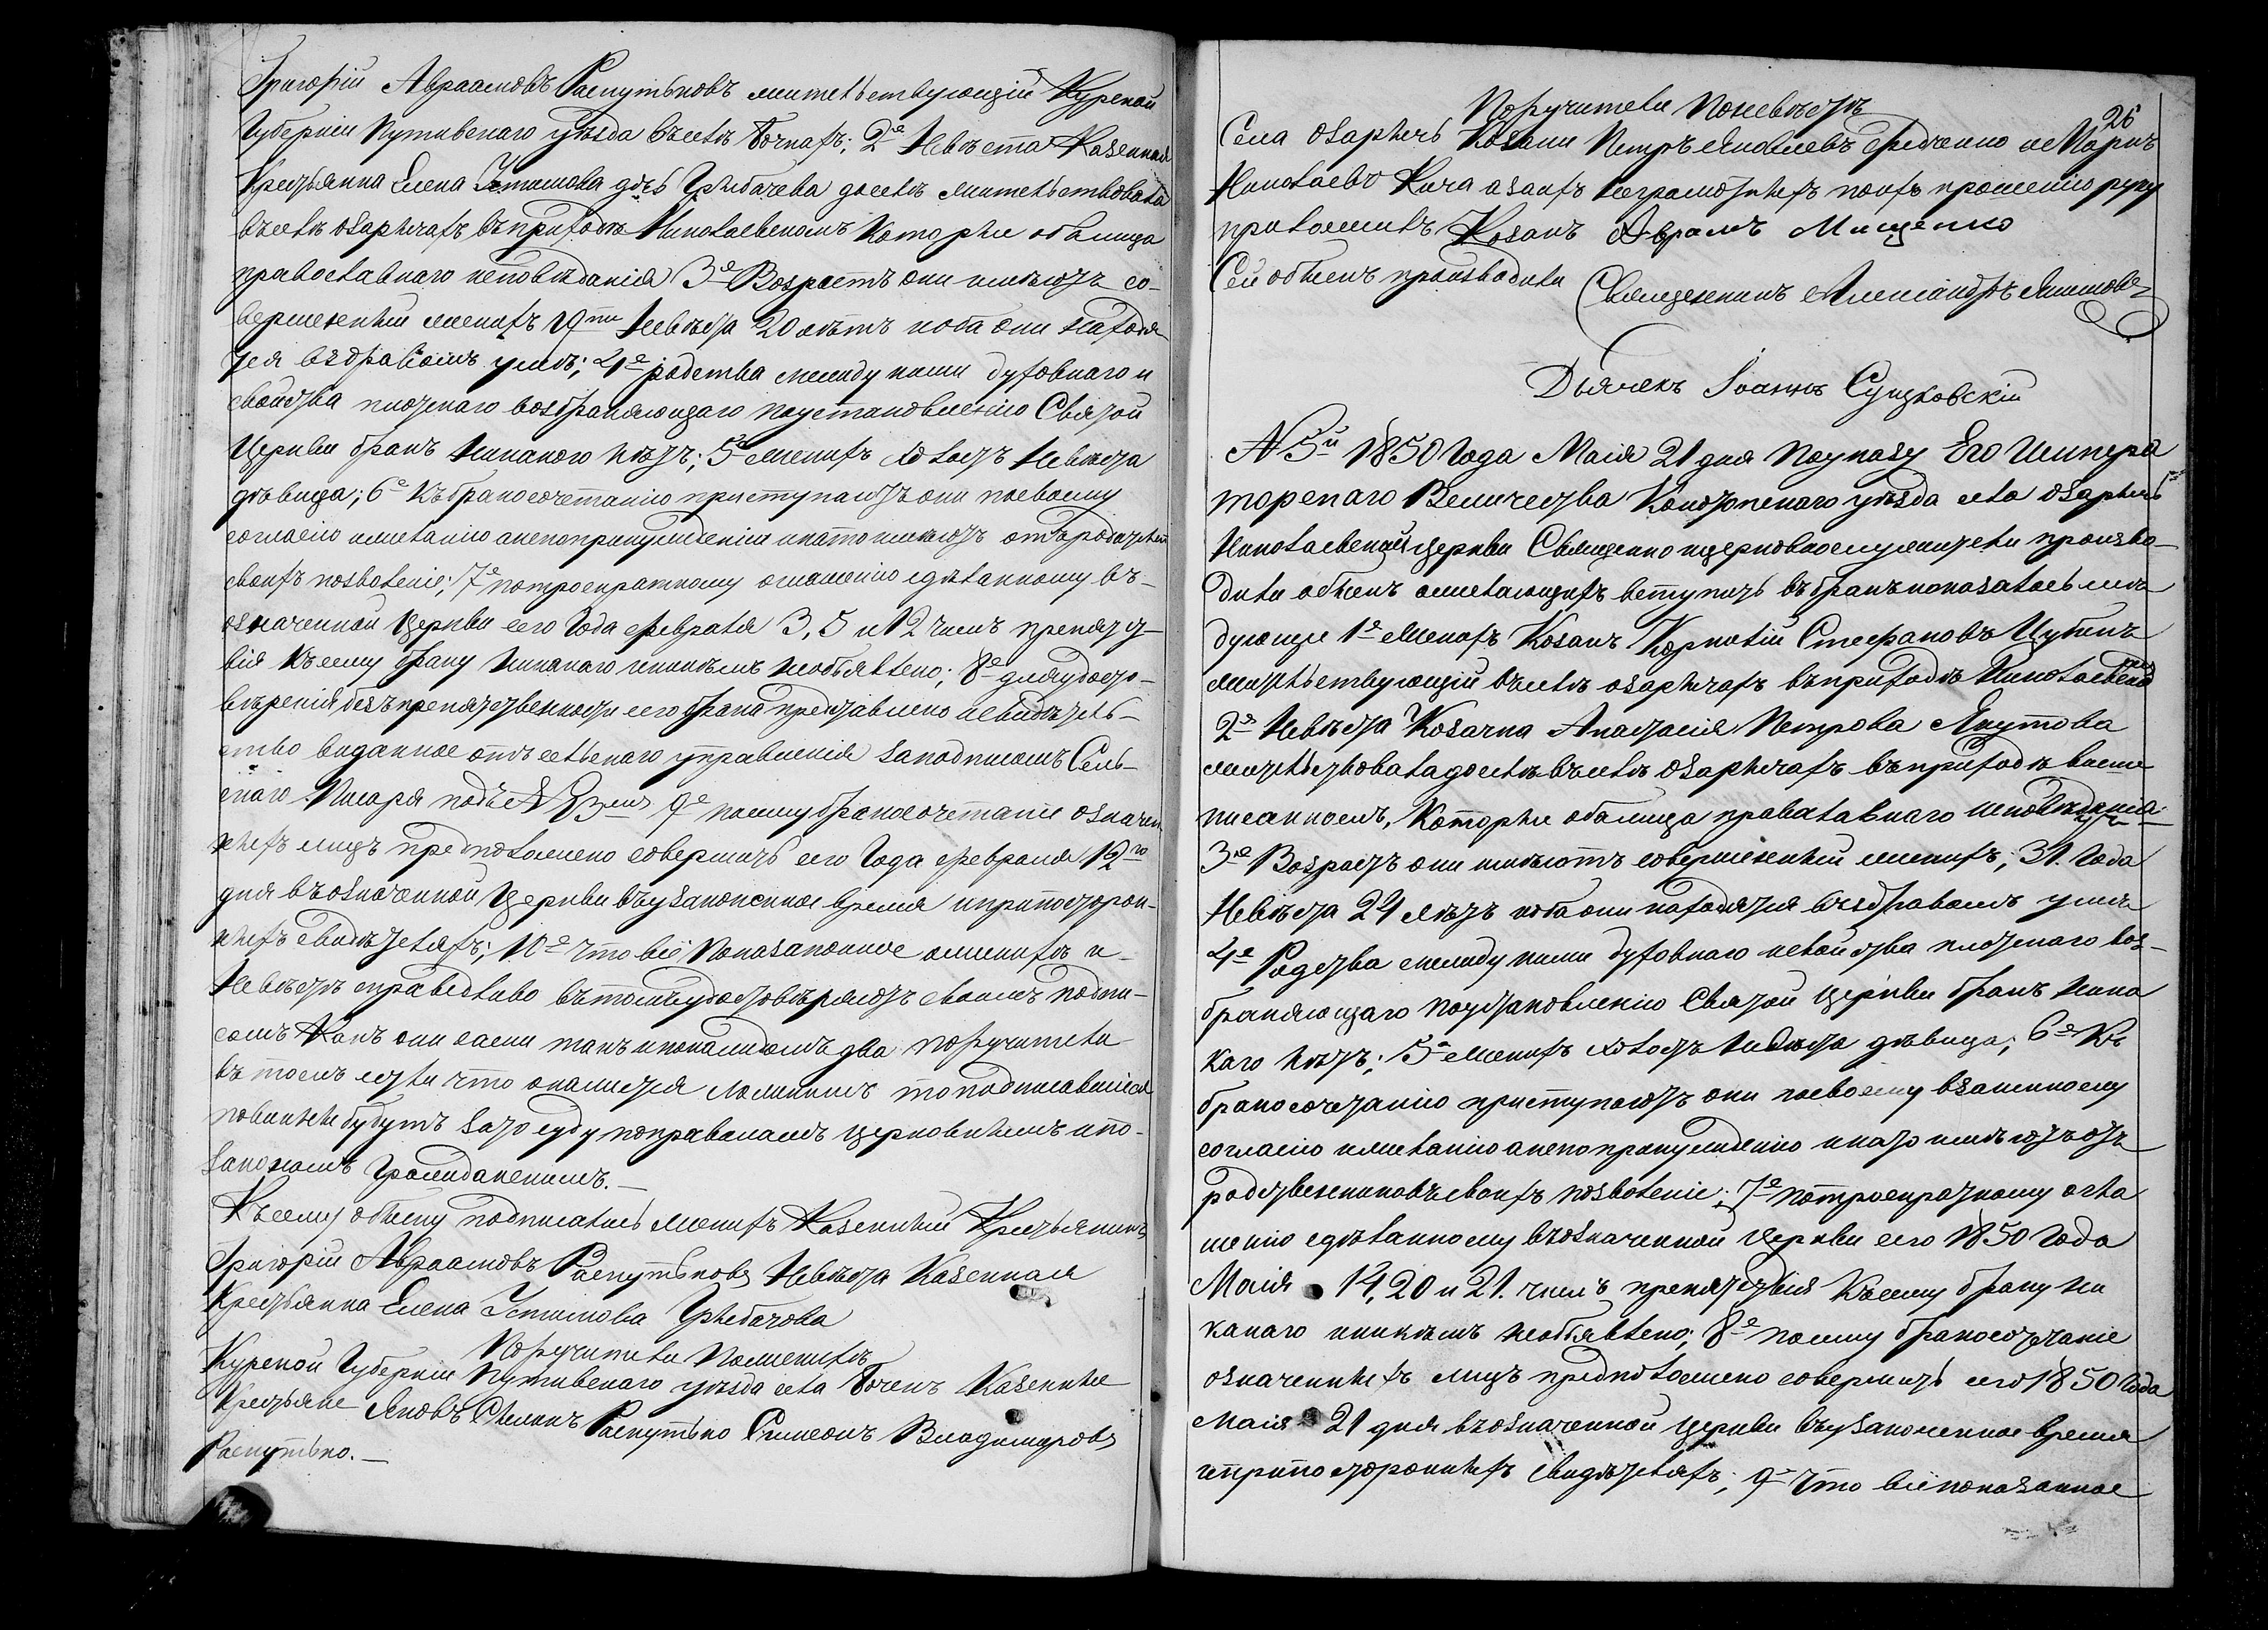 Григорій Авраамовъ Распутьковъ жительствующій Курской
Губерніи Путивскаго уѣзда въ селѣ Бочкахъ; 2е Невѣста Казенная
Крестьянка Елена Устимова дочь Грибачева доселѣ жительствовала
въ селѣ Озаричахъ въ приходѣ Николаевскомъ которые оба лица
православнаго исповѣданія 3е Возрастъ они имѣютъ со-
вершенный женихъ 19ти Невѣста 20 лѣтъ и оба они находя
тся в здравомъ умѣ; 4е родства между ними духовнаго и
свойства плотскаго возбраняющаго по установленію Святой
Церкви бракъ никакого нѣтъ; 5е женихъ холостъ Невѣста
дѣвица; 6е Къ бракосочетанію приступаютъ они по своему
согласію и желанію а не по принужденію и на то имѣютъ отъ родителей
своихъ позволеніе; 7е по троекратному оглашенію сдѣланному въ-
означенной Церкви сего Года февраля 3, 5 и 12 числъ препятст-
вія къ сему браку никакого никѣмъ необъявлено; 8е для удосто-
вѣренія безъпрепятственности сего брака представлено свидѣтель-
ство виданное отъ сельскаго управленія за подписомъ Сель-
скаго Писаря подъ № 93мъ 9е по сему бракосочетаніе означен
ныхъ лицъ предположено совершить сего Года февраля 12го
дня въ означенной Церкви въ узаконенное время и при посторон-
ныхъ свидѣтеляхъ; 10е что всё показаконное о женихѣ и-
Невѣстѣ справедливо въ томъ удостовѣряютъ своимъ подпи-
сомъ какъ они сами такъ и по каждомъ два поручителя
въ томъ если что окажется ложнымъ то подписавшіеся
повинны будутъ за то суду по правиламъ церковнымъ и по-
законамъ Гражданскимъ.
Къ сему обыску подписались женихъ Казенный Крестьянинъ
Григорій Авраамовъ Распутьковъ Невѣста Казенная
Крестьянка Елена Устимова Грибачова
Поручители по женихѣ
Курской Губерніи Путивскаго уѣзда села Бочекъ Казенные
Крестьяне Яковъ Распутько Симеонъ Владимировъ
Распутько.
26
Поручители по невѣстѣ
Села Озаричъ Козаки Петръ Яковлевъ Федченко и
Николаевъ Кича а за ихъ неграмотныхъ по ихъ прошенію руку
приложилъ Козакъ Аврамъ Мищенко
Сей обыскъ производили Священникъ Александръ
Дьячекъ Іоаннъ Сущковскій
№ 5й 1850 Года Маія 21 дня по указу Его Импера
торскаго Величества Конотопскаго уѣзда села Озаричъ
Николаевской церкви Священно и церковнослужители произво-
дили обыскъ о желающихъ вступить въ бракъ и оказалось слѣ
дующее 1е Женихъ Козакъ Корнилій Стефановъ Цубинъ
жительствующій въ селѣ Озаричахъ въ приходѣ Николаевском
2е Невѣста Козачка Анастасія Петрова Якутова
жительствовала доселѣ въ селѣ Озаричахъ въ приходѣ више
писанномъ, которые оба лица православнаго исповѣданія
3е Возрастъ они имѣютъ совершенный женихъ; 31. Года
Невѣста 24 лѣтъ и оба они находятся въ здравомъ умѣ
4е Родства между ними духовнаго и свойства плотскаго воз-
браняющаго по установленію Святой Церкви бракъ ника
каго нѣтъ; 5е женихъ холостъ Невѣста дѣвица; 6е Къ
бракосочетанію приступаютъ они по своему взаимному
согласію и желанію а не по принужденію и на то имѣютъ отъ
родственниковъ своихъ позволеніе; 7е по троекратному огла
шенію сдѣланному въ означенной Церкви сего 1850 Года
Маія 14, 20 и 21. числъ препятствія къ сему браку ни
какаго никѣмъ необъявлено; 8е по сему бракосочетаніе
означенныхъ лицъ предположено совершить сего 1850 Года
Маія 21 дня въ означенной Церкви въ узаконенное время
и при постороннихъ свидѣтеляхъ; 9е что всё показанное